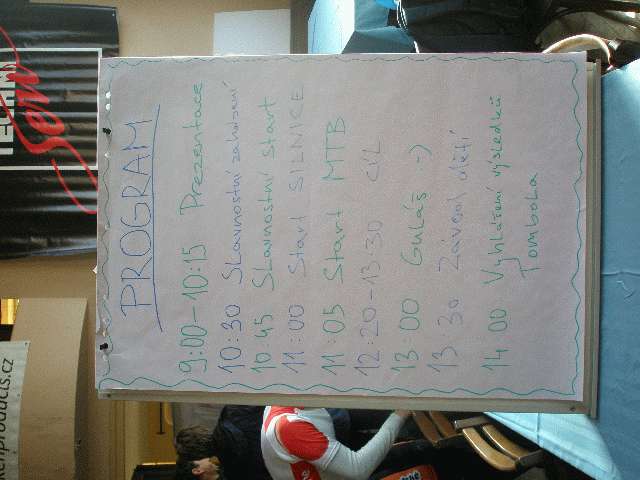 PROGRAM
9:00-10:15 Prezentace
10:30 Slavnostní zahájení
10:45 Slavnostní start
11:00 Start SILNICE
11:05 Start MTB
12:20-13:30 CÍL
13:00 Guláš :-)
13 30 Závod dětí
14 00 Vyhlášení výsledků
Tombola
Sen
kenproducts.cz